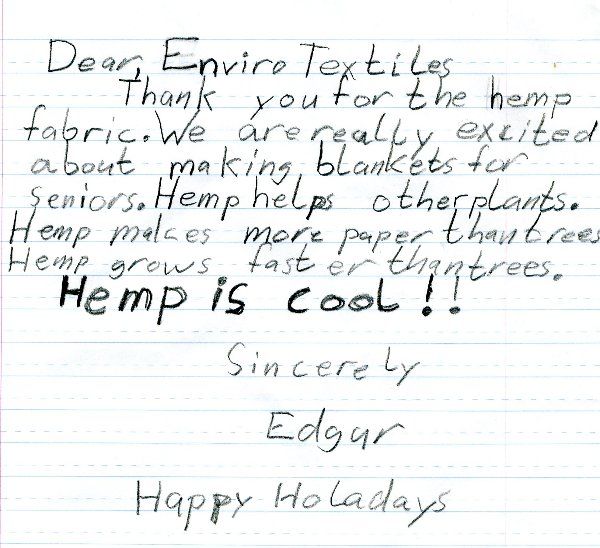 Dear, Enviro Textiles
Thank you for the hemp
fabric. We are really excited
about making blankets for
seniors. Hemp helps other plants.
Hemp makes more paper than trees
Hemp grows faster than trees.
Hemp is cool!!
Sincerely
Edgar
Happy Holadays